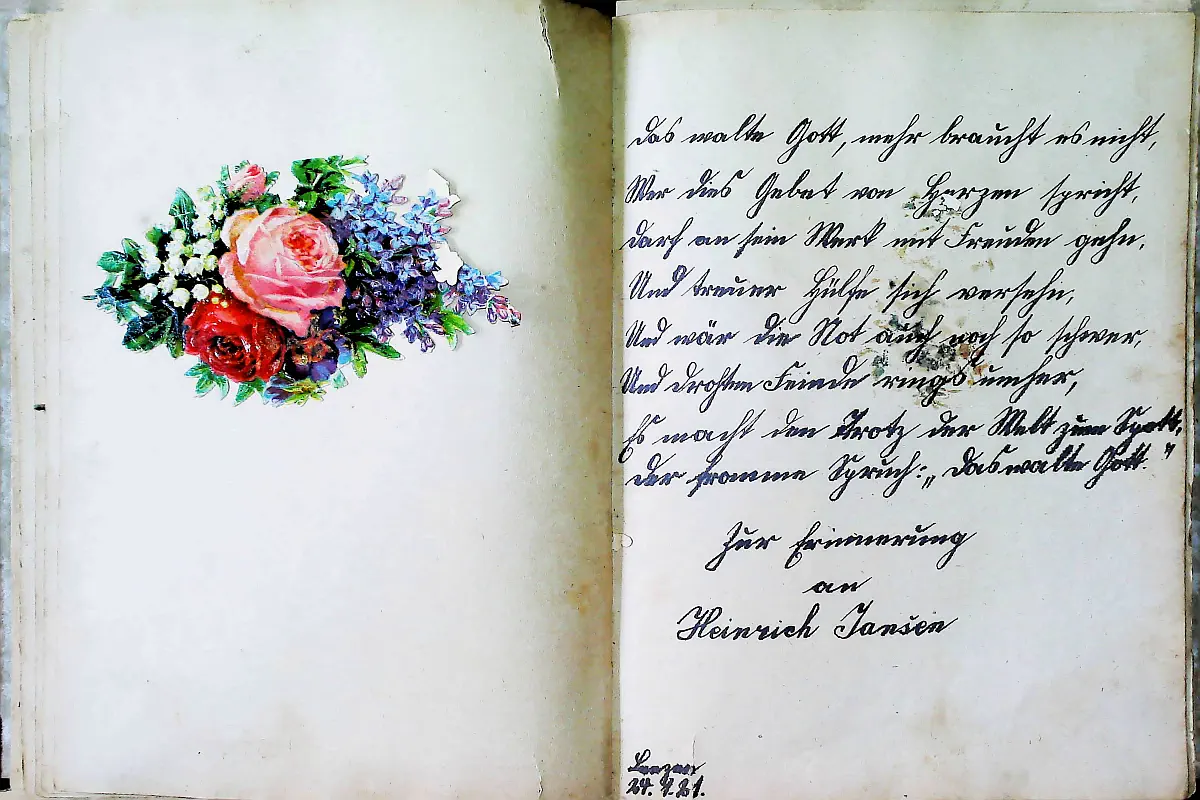 Das walte Gott, mehr braucht es nicht,
Wer dies Gebet von Herzen spricht,
darf an sein Werk mit Freuden gehn,
Und treuer Hülfe sich versehn,
Und wär die Not auch noch so schwer,
Und drohten Feinde rings umher,
Es macht den Trotz der Welt zum Spott,
der fromme Spruch: „Das walte Gott."
Zur Erinnerung
an
Heinrich Jansen